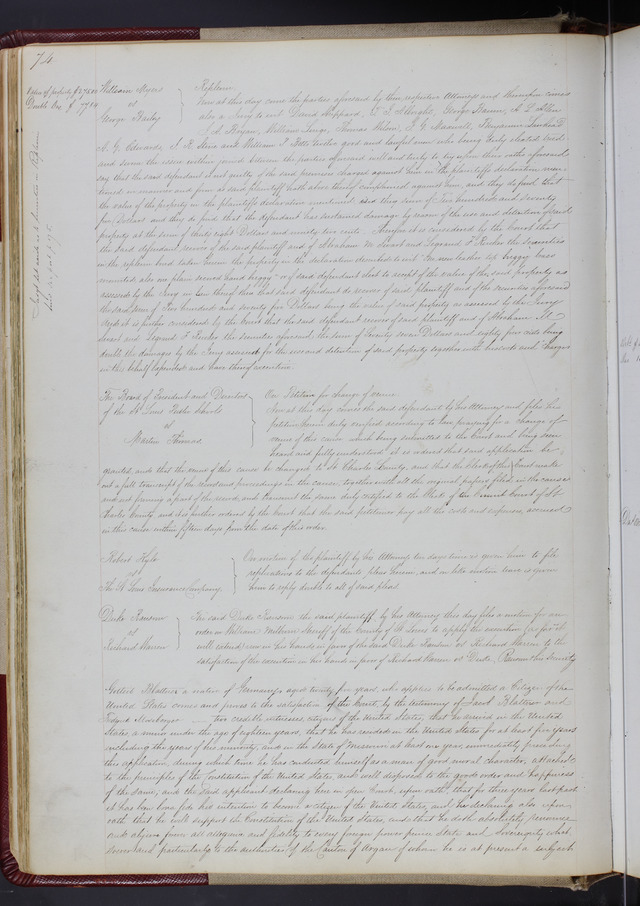 74
William Myers
vs
George Bailey
Replevin
Now at this day come the parties aforesaid by their respective Attorneys and thereupon comes
also a Jury to wit David Sheppard, George
William Thomas Wilson, Benjamin
A. G. Edwards, and William twelve good and lawful men who being duly elected tried
and sworn the issue within joined between the parties aforesaid well and truly to try upon their oaths aforesaid
say that the said defendant is not guilty of the said premises charged against him in the plaintiff's declaration men-
tioned in manner and form as said plaintiff hath above thereof complained against him, and they do find that
the value of the property in the plaintiff's declaration mentioned is the sum of Two hundred and seventy
five Dollars and they do find that the defendant has sustained damage by reason of the use and detention of said
property at the sum of thirty eight Dollars and ninety two cents. Therefore it is considered by the Court that
the said defendant recover of the said plaintiff and of Abraham and the Securities
in the replevin bond taken herein the property in the declaration described to wit leather top buggy
said defendant elect to accept of the value of the said property as
assessed by the Jury in lieu thereof then that said defendant do recover of said plaintiff and of the securities aforesaid
the said sum of Two hundred and seventy five Dollars being the value of said property as assessed by the Jury
And it is further considered by the Court that the said defendant recover of said plaintiff and of Abraham
and the securities aforesaid, the sum of Seventy seven Dollars and eighty four cents being
double the damages by the Jury assessed for the use and detention of said property together with his costs and charges
in this behalf expended and have thereof execution.
The Board of President and Directors
of the St Louis Public Schools
vs
Martin Thomas
On Petition for change of venue
Now at this day comes the said defendant by his Attorney and files his
petition herein duly verified according to law praying for a change of
venue of this cause which being submitted to the Court and being seen
heard and fully understood it is ordered that said application be
granted, and that the venue of this cause be changed to St Charles County, and that the Clerk of this Court make
out a full transcript of the record and proceedings in the cause together with all the original papers filed in the cause
and not forming a part of the record, and transmit the same duly certified to the Clerk of the Circuit Court of St
Charles County and it is further ordered by the Court that the said petitioner pay all the costs and expenses, accrued
in this cause within fifteen days from the date of this order.
Robert
vs
The St Louis Insurance Company
On motion of the plaintiff by his Attorney ten days time is given him to file
replications to the defendants pleas herein, and on like motion leave is given
him to reply double to all of said pleas.
Duke Ransom
vs
Richard Warren
The said Duke Ransom the said plaintiff, by his Attorney this day files a motion for an
order on William Milburn Sheriff of the County of St Louis to apply the execution (as far as it
will extend) now in his hands in favor of the said Duke Ransom vs Richard Warren to the
satisfaction of the execution in his hands in favor of Richard Warren vs Duke Ransom
a native of Germany aged twenty five years who applies to be admitted a Citizen of the
United States comes and proves to the satisfaction of the Court, by the testimony of Jacob and
two credible witnesses, citizens of the United States, that he arrived in the United
States a minor under the age of eighteen years, that he has resided in the United States for at least five years
including the years of his minority, and in the State of Missouri at least one year immediately preceding
this application, during which time he has conducted himself as a man of good moral character, attached
to the principles of the Constitution of the United States, and well disposed to the good order and happiness
of the same, and the said applicant declaring here in open Court, upon oath, that for three years last past
it has been bona fide his intention to become a citizen of the United States, and he declaring also upon
oath that he will support the Constitution of the United States, and that he doth absolutely renounce
and abjure forever all allegiance and fidelity to every foreign power prince State and Sovereignty what-
soever and particularly to the authorities of the Canton of Argau of whom he is at present a subject